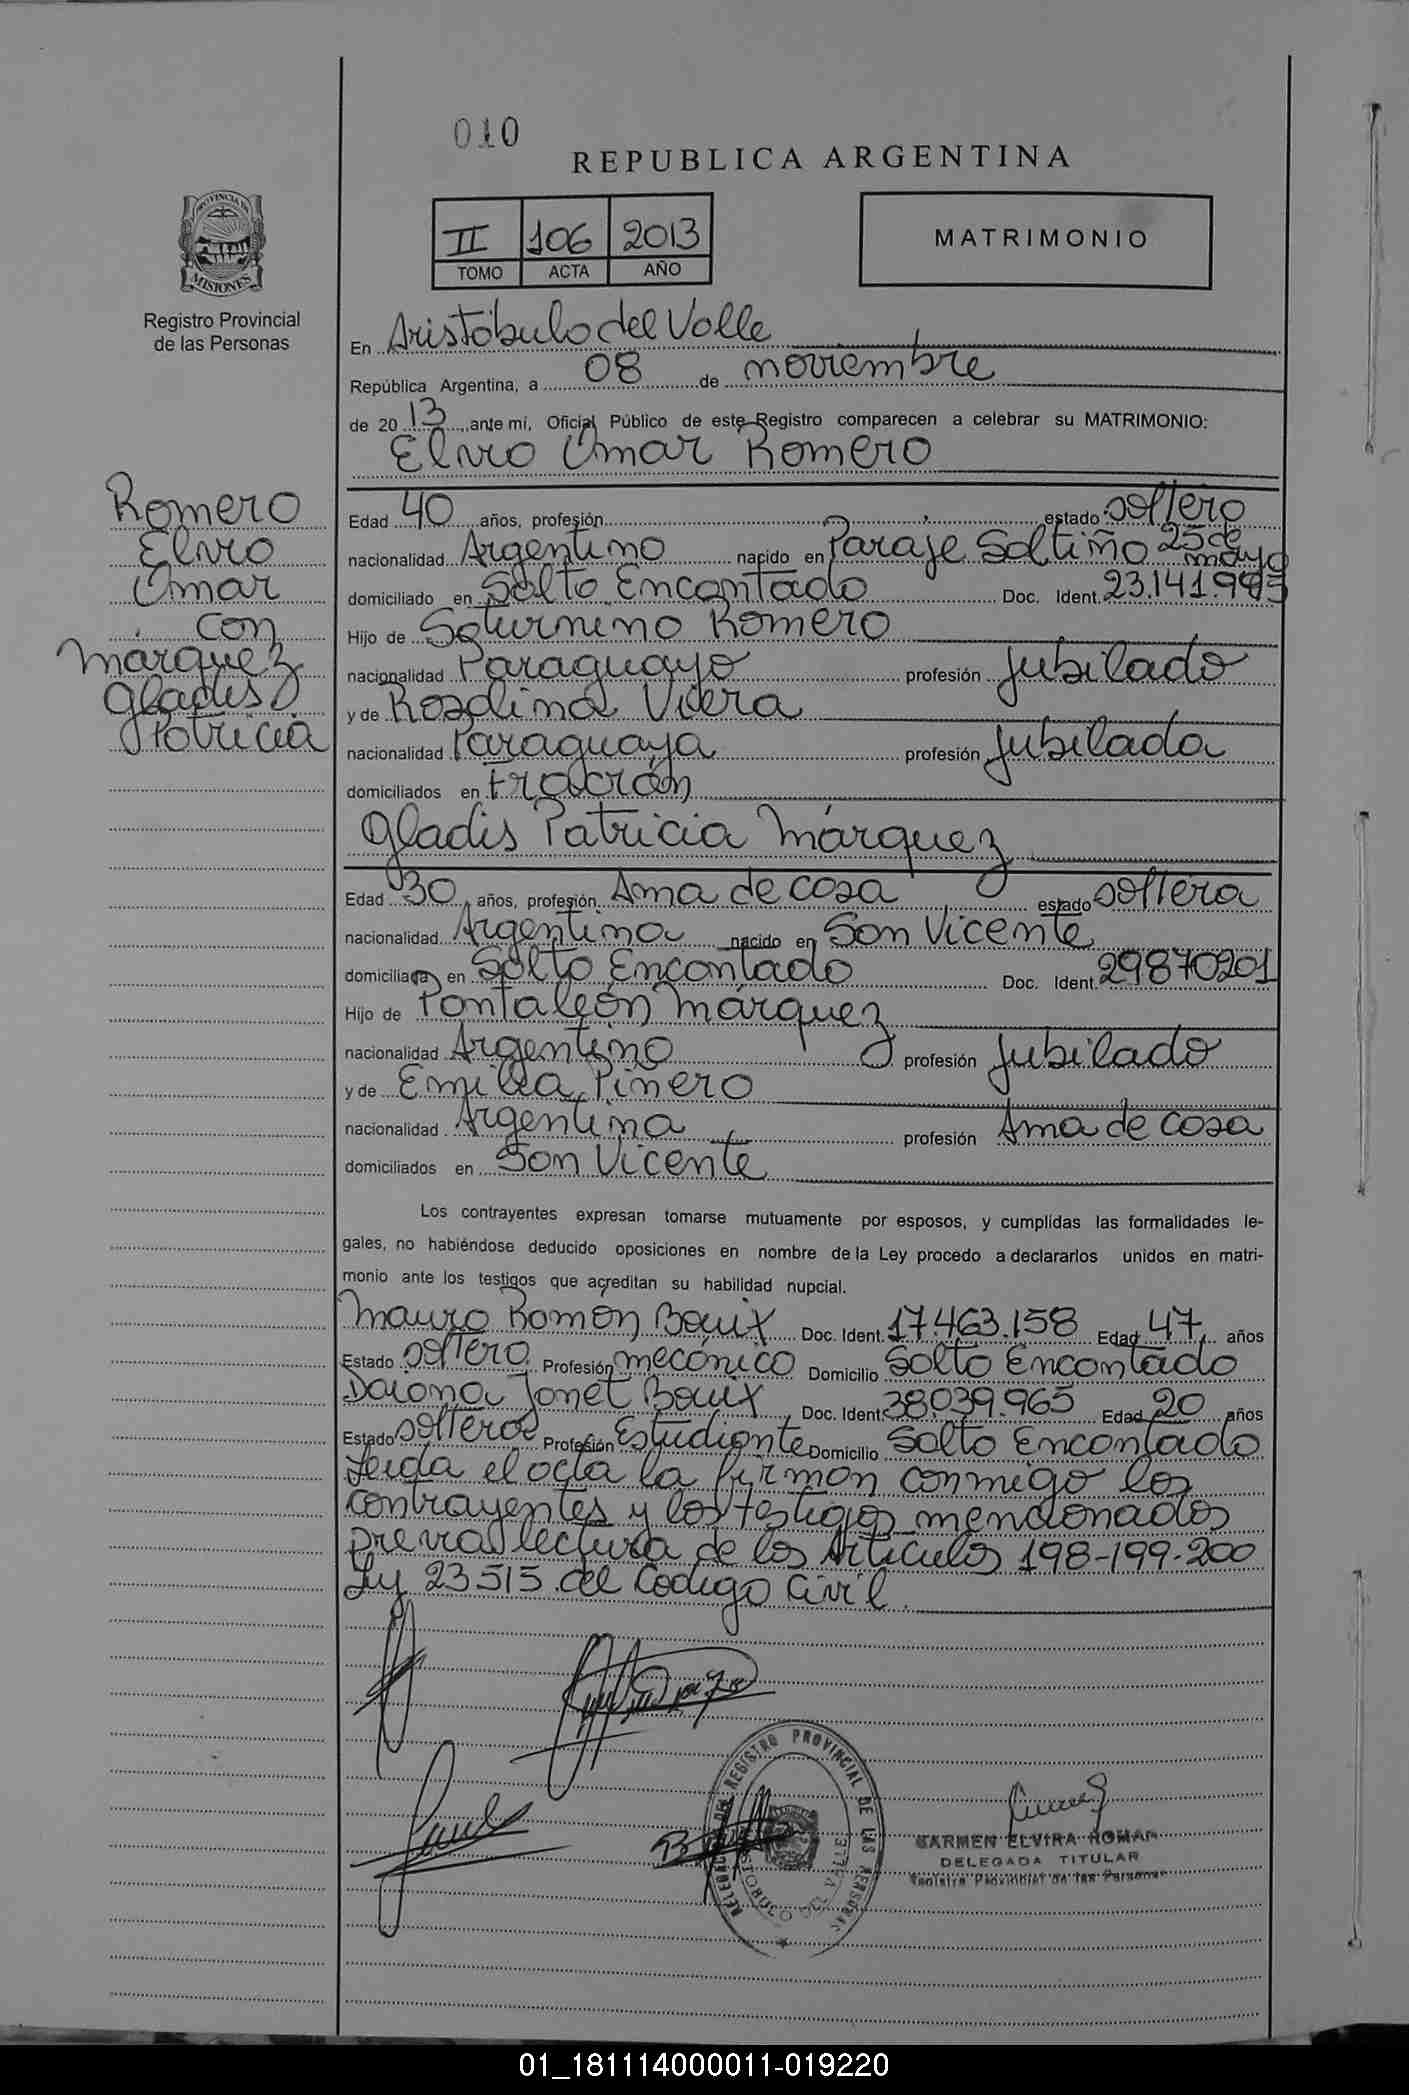 010
REPUBLICA ARGENTINA
PROVINCIA DE
MISIONES
Registro Provincial
de las Personas
II 106 2013
TOMO ACTA AÑO
MATRIMONIO
En Aristóbulo del Valle
República Argentina, a 08 de noviembre
de 2013 ante mí, Oficial Público de este Registro comparecen a celebrar su MATRIMONIO:
Elvio Omar Romero
Romero
Elvio
Omar
con
Márquez
Gladis
Patricia
Edad 40 años, profesión estado soltero
nacionalidad Argentino nacido en Paraje Saltiño 25 de mayo
domiciliado en Salto Encantado Doc. Ident. 23.141.
Hijo de Saturnino Romero
nacionalidad Paraguayo profesión Jubilado
y de Rosalina Viera
nacionalidad Paraguaya profesión Jubilada
domiciliados en Fracrán
Gladis Patricia Márquez
Edad 30 años, profesión Ama de casa estado soltera
nacionalidad Argentina nacido en San Vicente
domiciliada en Salto Encantado Doc. Ident. 29870201
Hijo de Pantaleón Márquez
nacionalidad Argentino profesión Jubilado
y de Emilia Piñero
nacionalidad Argentina profesión Ama de casa
domiciliados en San Vicente
Los contrayentes expresan tomarse mutuamente por esposos, y cumplidas las formalidades le-
gales, no habiéndose deducido oposiciones en nombre de la Ley procedo a declararlos unidos en matri-
monio ante los testigos que acreditan su habilidad nupcial.
Mauro Ramón Bouix Doc. Ident. 17.463.158 Edad 47 años
Estado soltero Profesión mecánico Domicilio Salto Encantado
Daiana Janet Bouix Doc. Ident. 38.039.965 Edad 20 años
Estado soltera Profesión Estudiante Domicilio Salto Encantado
Leida el acta la firman conmigo los
contrayentes y los testigos mencionados
previa lectura de los Artículos 198-199-200
Ley 23515 del Codigo Civil.
REGISTRO PROVINCIAL DE LAS PERSONAS
DEL VALLE
CARMEN ELVIRA ROMAN
DELEGADA TITULAR
Registro Provincial de las Personas
01_181114000011-019220